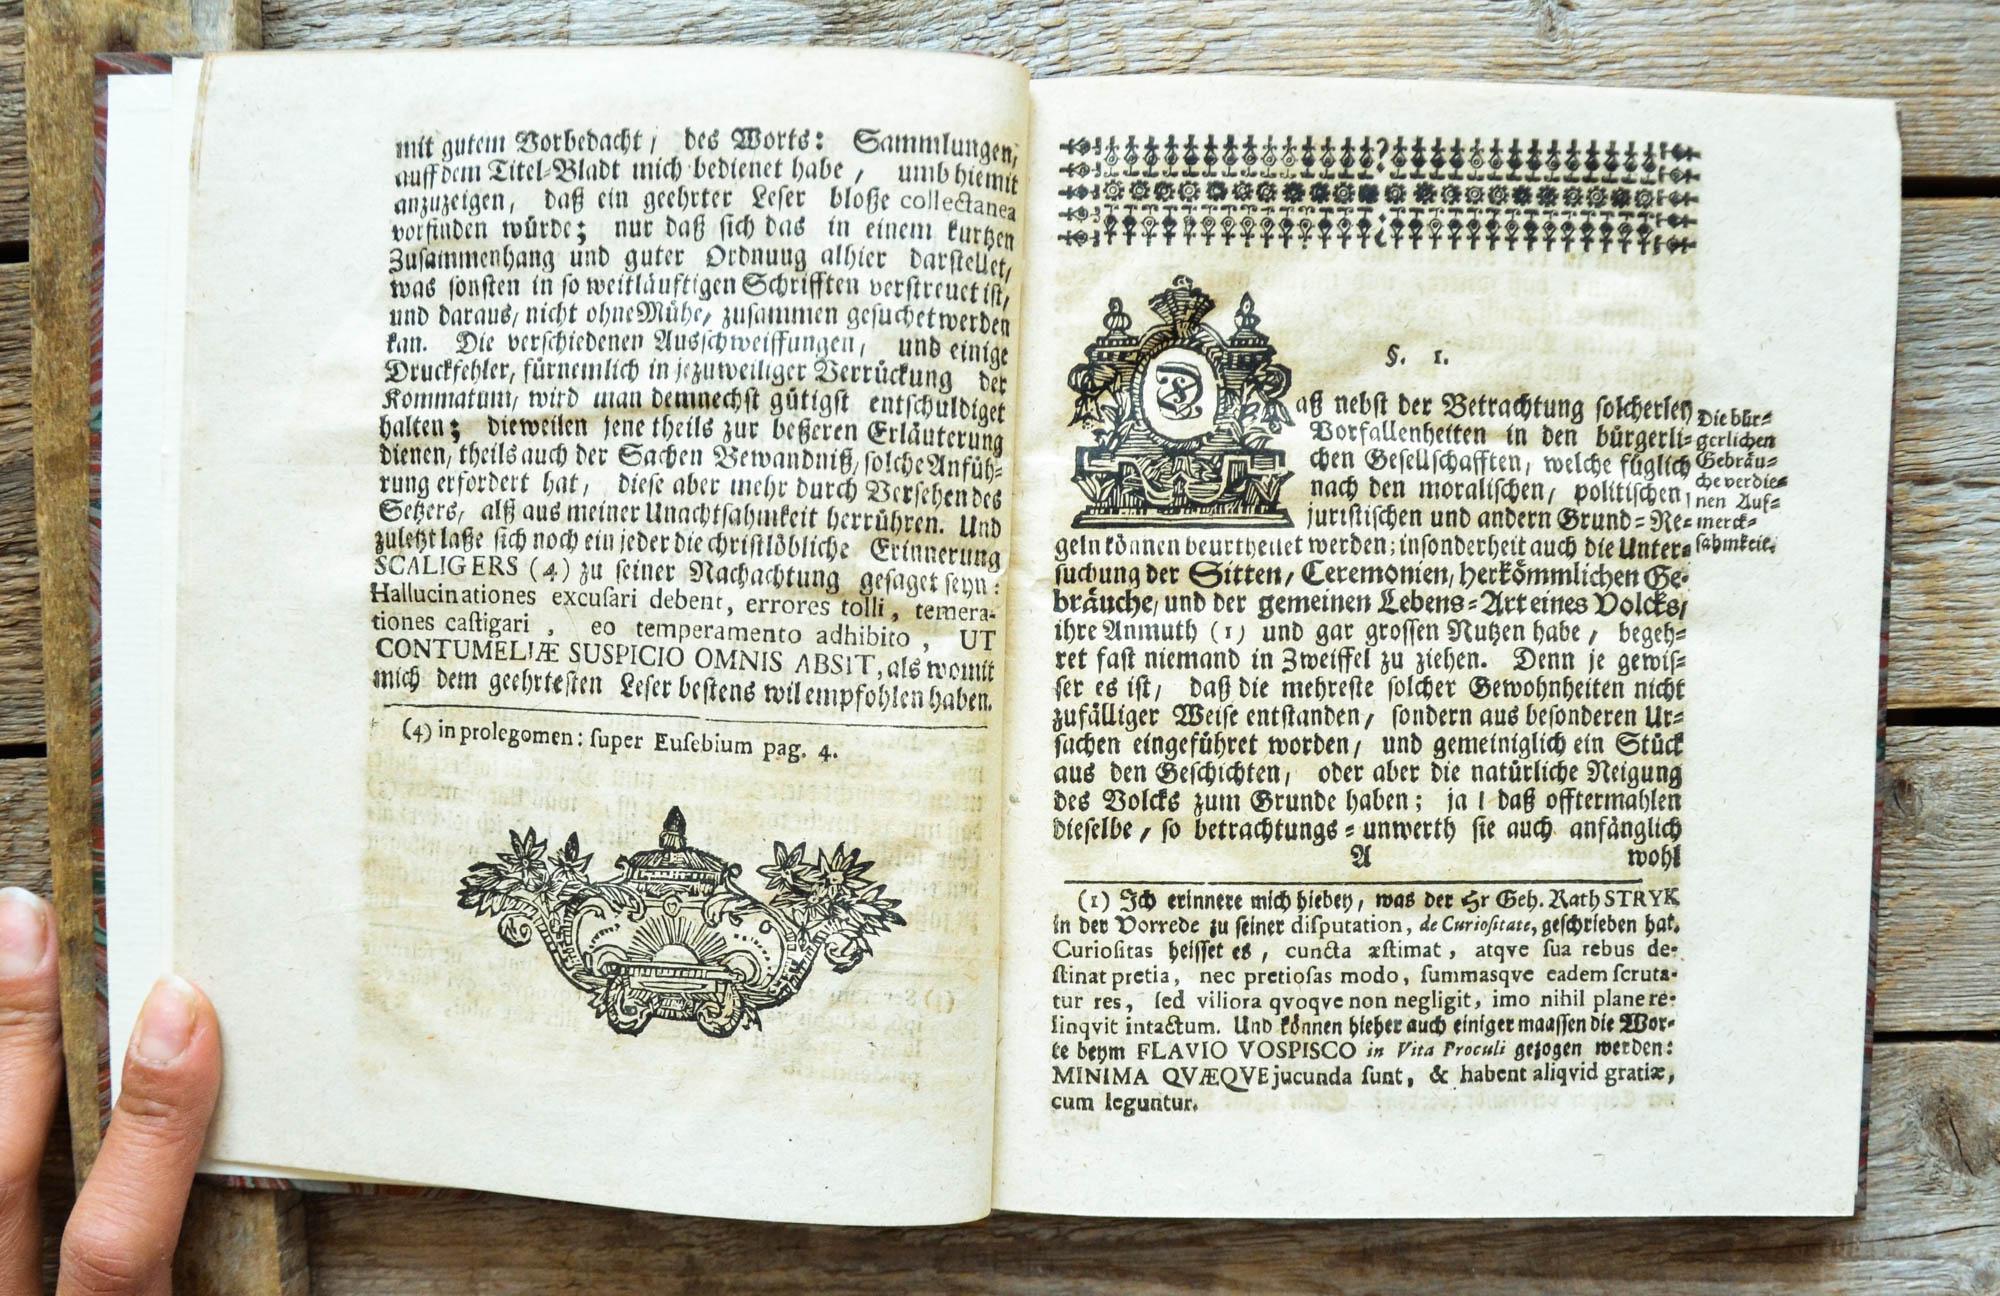 mit gutem Vorbedacht / des Worts: Sammlungen,
auff dem Titel-Bladt mich bedienet habe / umb hiemit
anzuzeigen, daß ein geehrter Leser bloße collectanea
vorfinden würde; nur daß sich das in einem kurtzen
Zusammenhang und guter Ordnung alhier darstellet,
was sonsten in so weitläuftigen Schrifften verstreuet ist,
und daraus, nicht ohne Mühe, zusammen gesuchet werden
kan. Die verschiedenen Ausschweiffungen, und einige
Druckfehler, fürnemlich in jezuweiliger Verrückung der
Kommatum, wird man demnechst gütigst entschuldiget
halten; dieweilen jene theils zur beßeren Erläuterung
dienen, theils auch der Sachen Bewandniß, solche Anfüh-
rung erfordert hat, diese aber mehr durch Versehen des
Setzers, alß aus meiner Unachtsahmkeit herrühren. Und
zuletzt laße sich noch ein jeder die christlöbliche Erinnerung
SCALIGERS (4) zu seiner Nachachtung gesaget seyn:
Hallucinationes excusari debent, errores tolli, temera-
tiones castigari, eo temperamento adhibito, UT
CONTUMELIÆ SUSPICIO OMNIS ABSIT, als womit
mich dem geehrtesten Leser bestens wil empfohlen haben.
(4) in prolegomen: super Eusebium pag. 4.
§. 1.
Daß nebst der Betrachtung solcherley
Vorfallenheiten in den bürgerli-
chen Gesellschafften, welche füglich
nach den moralischen, politischen,
juristischen und andern Grund-Re-
geln können beurtheilet werden; insonderheit auch die Unter-
suchung der Sitten, Ceremonien, herkömmlichen Ge-
bräuche, und der gemeinen Lebens-Art eines Volcks,
ihre Anmuth (1) und gar grossen Nutzen habe, begeh-
ret fast niemand in Zweiffel zu ziehen. Denn je gewis-
ser es ist, daß die mehreste solcher Gewohnheiten nicht
zufälliger Weise entstanden, sondern aus besonderen Ur-
sachen eingeführet worden, und gemeiniglich ein Stück
aus den Geschichten, oder aber die natürliche Neigung
des Volcks zum Grunde haben; ja! daß offtermahlen
dieselbe, so betrachtungs-unwerth sie auch anfänglich
A wohl
Die bür-
gerlichen
Gebräu-
che verdie-
nen Auf-
merck-
sahmkeit.
(1) Ich erinnere mich hiebey, was der Hr Geh. Rath STRYK
in der Vorrede zu seiner disputation, de Curiositate, geschrieben hat.
Curiositas heisset es, cuncta æstimat, atqve sua rebus de-
stinat pretia, nec pretiosas modo, summasqve eadem scruta-
tur res, sed viliora qvoqve non negligit, imo nihil plane re-
linqvit intactum. Und können hieher auch einiger maassen die Wor-
te beym FLAVIO VOSPISCO in Vita Proculi gezogen werden:
MINIMA QVÆQVE jucunda sunt, & habent aliqvid gratiæ,
cum leguntur.